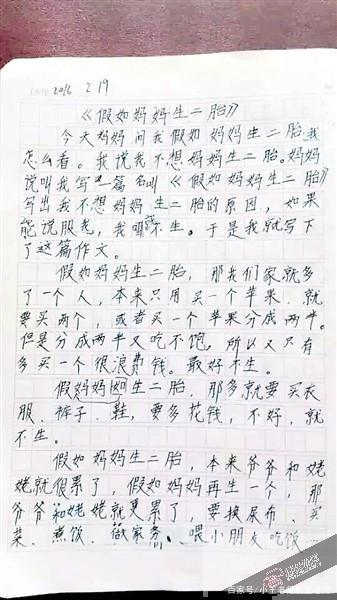 DATE 2016 2 19
《假如妈妈生二胎》
今天妈妈问我假如妈妈生二胎我
怎么看。我说我不想妈妈生二胎。妈妈
说叫我写一篇名叫《假如妈妈生二胎》
写出我不想妈妈生二胎的原因,如果
能说服我,我就不生。于是我就写下
了这篇作文。
假如妈妈生二胎,那我们家就多
了一个人,本来只用买一个苹果,就
要买两个,或者买一个苹果分成两半。
但是分成两半又吃不饱,所以又只有
多买一个很浪费钱。最好不生。
假妈妈生二胎,那多就要买衣
服、裤子、鞋,要多花钱,不好,就
不生。
假如妈妈生二胎,本来爷爷和姥
姥就很累了,假如妈妈再生一个,那
爷爷和姥姥就更累了,要换尿布、买
菜、煮饭、做家务、喂小朋友吃饭
百家号/小王老师